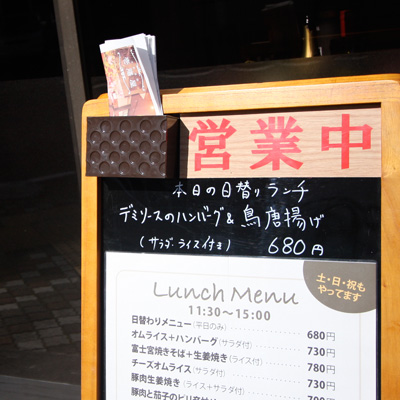 営業中
本日の日替りランチ
デミソースのハンバーグ&鳥唐揚げ
(サラダ・ライス付き) 680円
土・日・祝も
やってます
Lunch Menu
11:30〜15:00
日替わりメニュー(平日のみ) 680円
オムライス+ハンバーグ(サラダ付) 730円
富士宮焼きそば+生姜焼き(ライス付) 780円
チーズオムライス(サラダ付) 730円
豚肉生姜焼き(ライス+サラダ付) 730円
豚肉と茄子のピリ辛